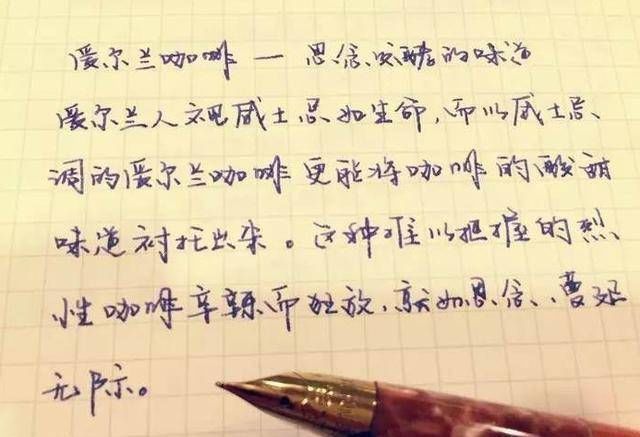 爱尔兰咖啡 — 思念发酵的味道
爱尔兰人视威士忌如生命,而以威士忌
调的爱尔兰咖啡更能将咖啡的酸甜
味道衬托出来。这种难以把握的烈
性咖啡辛辣而狂放,就如思念,漫延
无际。